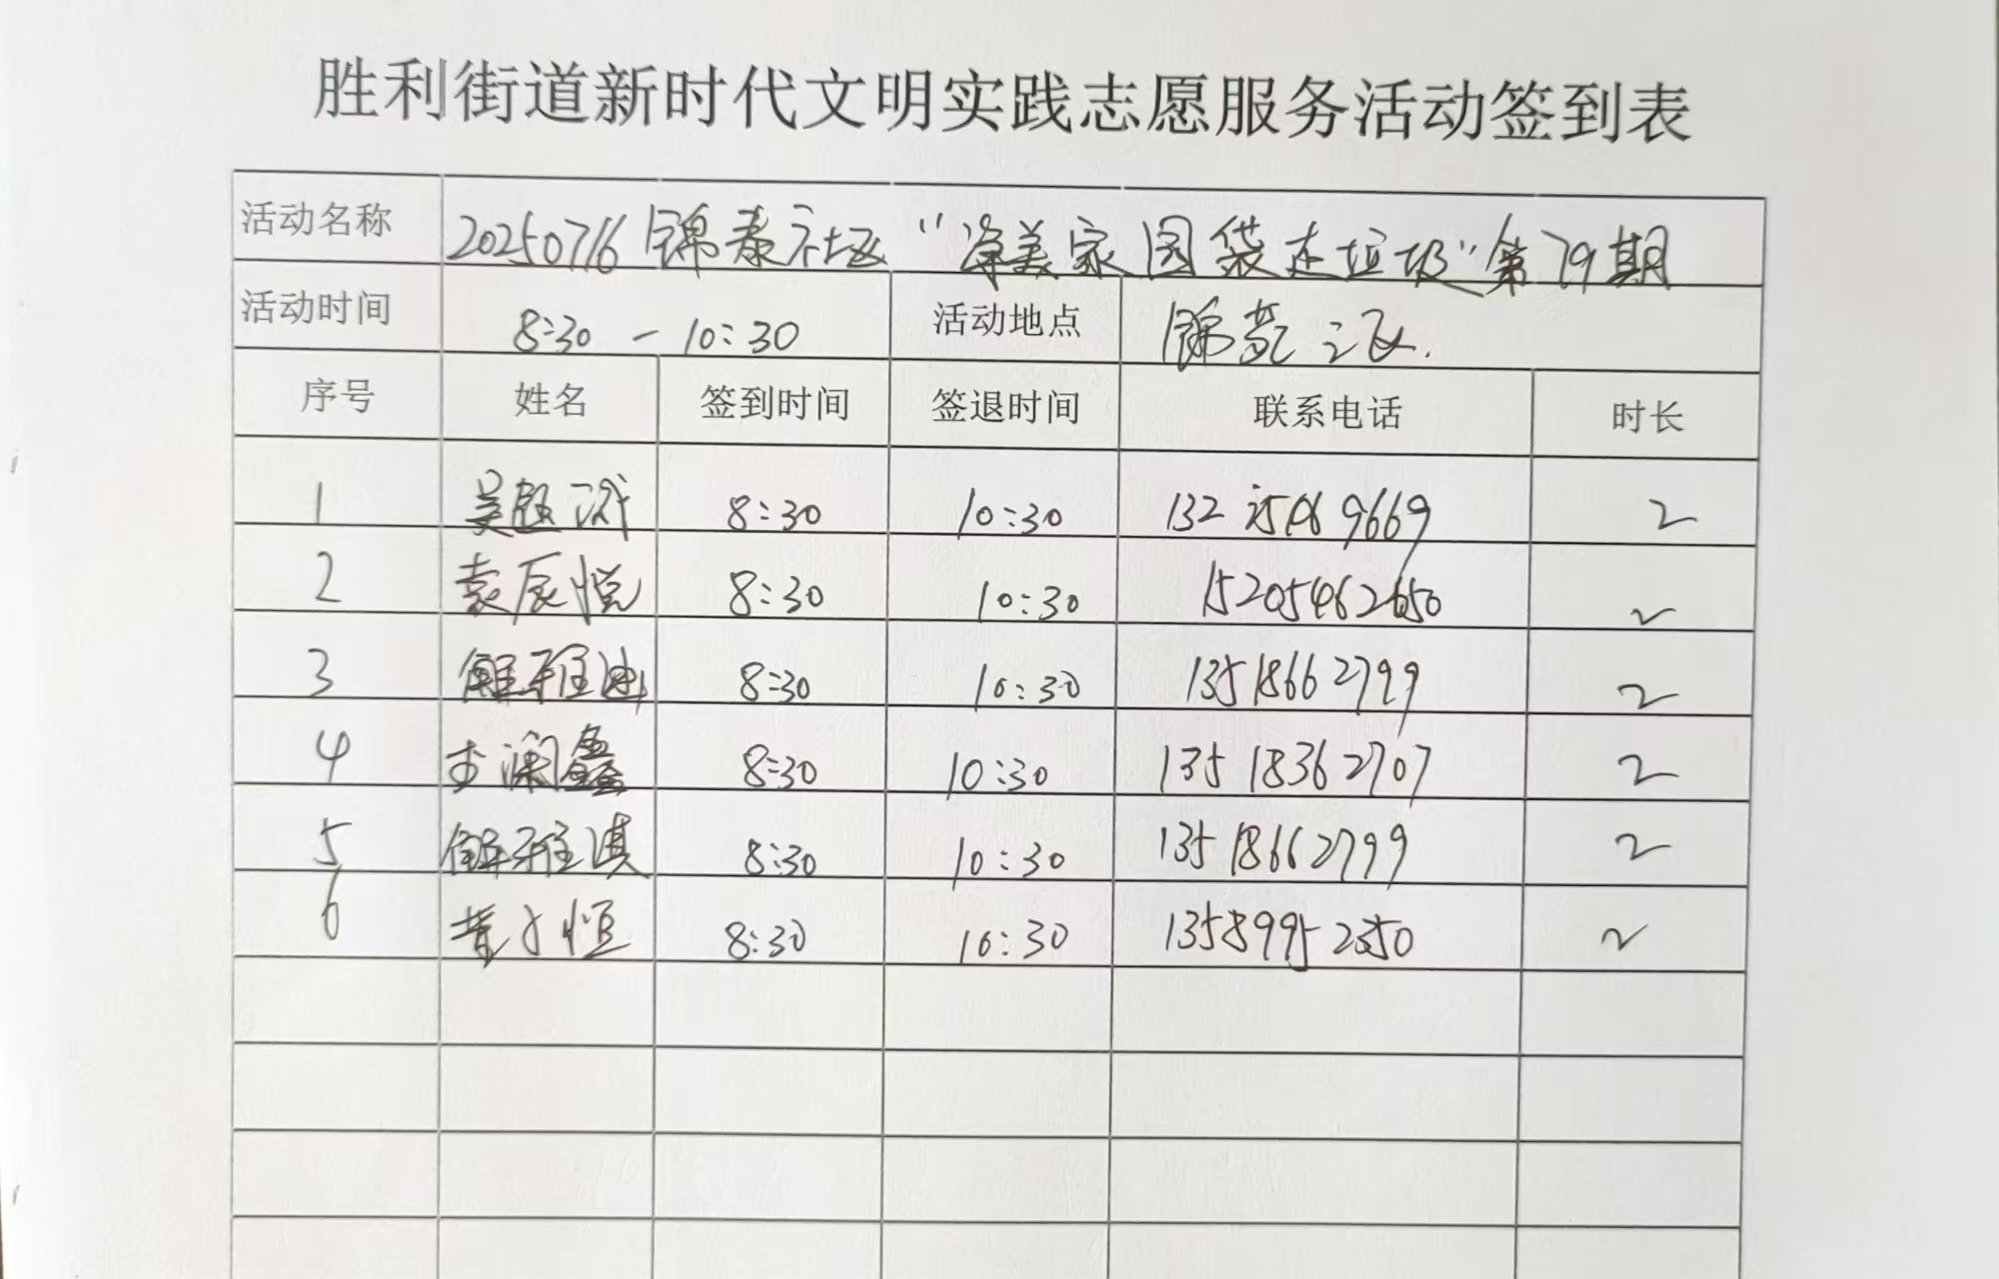 胜利街道新时代文明实践志愿服务活动签到表
活动名称 20250716锦泰社区"净美家园袋走垃圾"第79期
活动时间 8:30 — 10:30 活动地点 锦苑三区.
序号 姓名 签到时间 签退时间 联系电话 时长
1 吴 8:30 10:30 9669 2
2 袁辰悦 8:30 10:30 15205462650 2
3 解雅迪 8:30 10:30 13518662799 2
4 澜鑫 8:30 10:30 13518362707 2
5 解雅淇 8:30 10:30 13518662799 2
6 黄子恒 8:30 10:30 13589952350 2